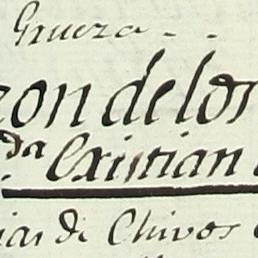 Grueza - -
zon de los
da Cxistian
ias di Chivos